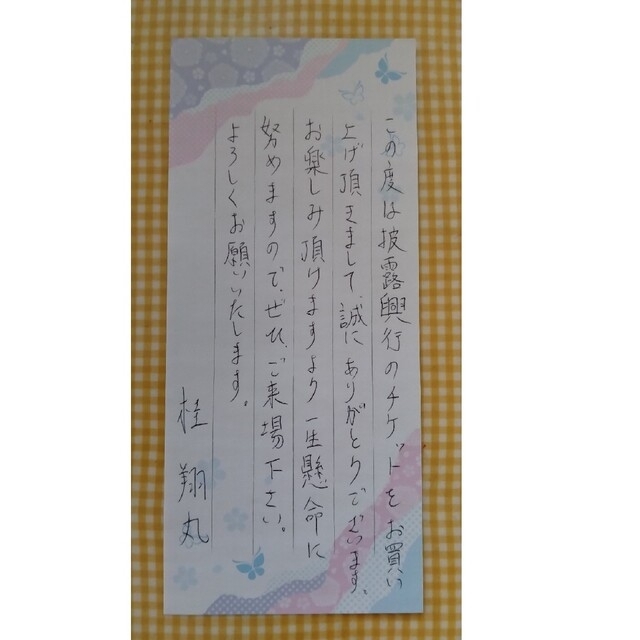 この度は披露興行のチケットをお買い
上げ頂きまして、誠にありがとうございます。
お楽しみ頂けますよう一生懸命に
努めますので、ぜひ、ご来場下さい。
よろしくお願いいたします。
桂 翔丸